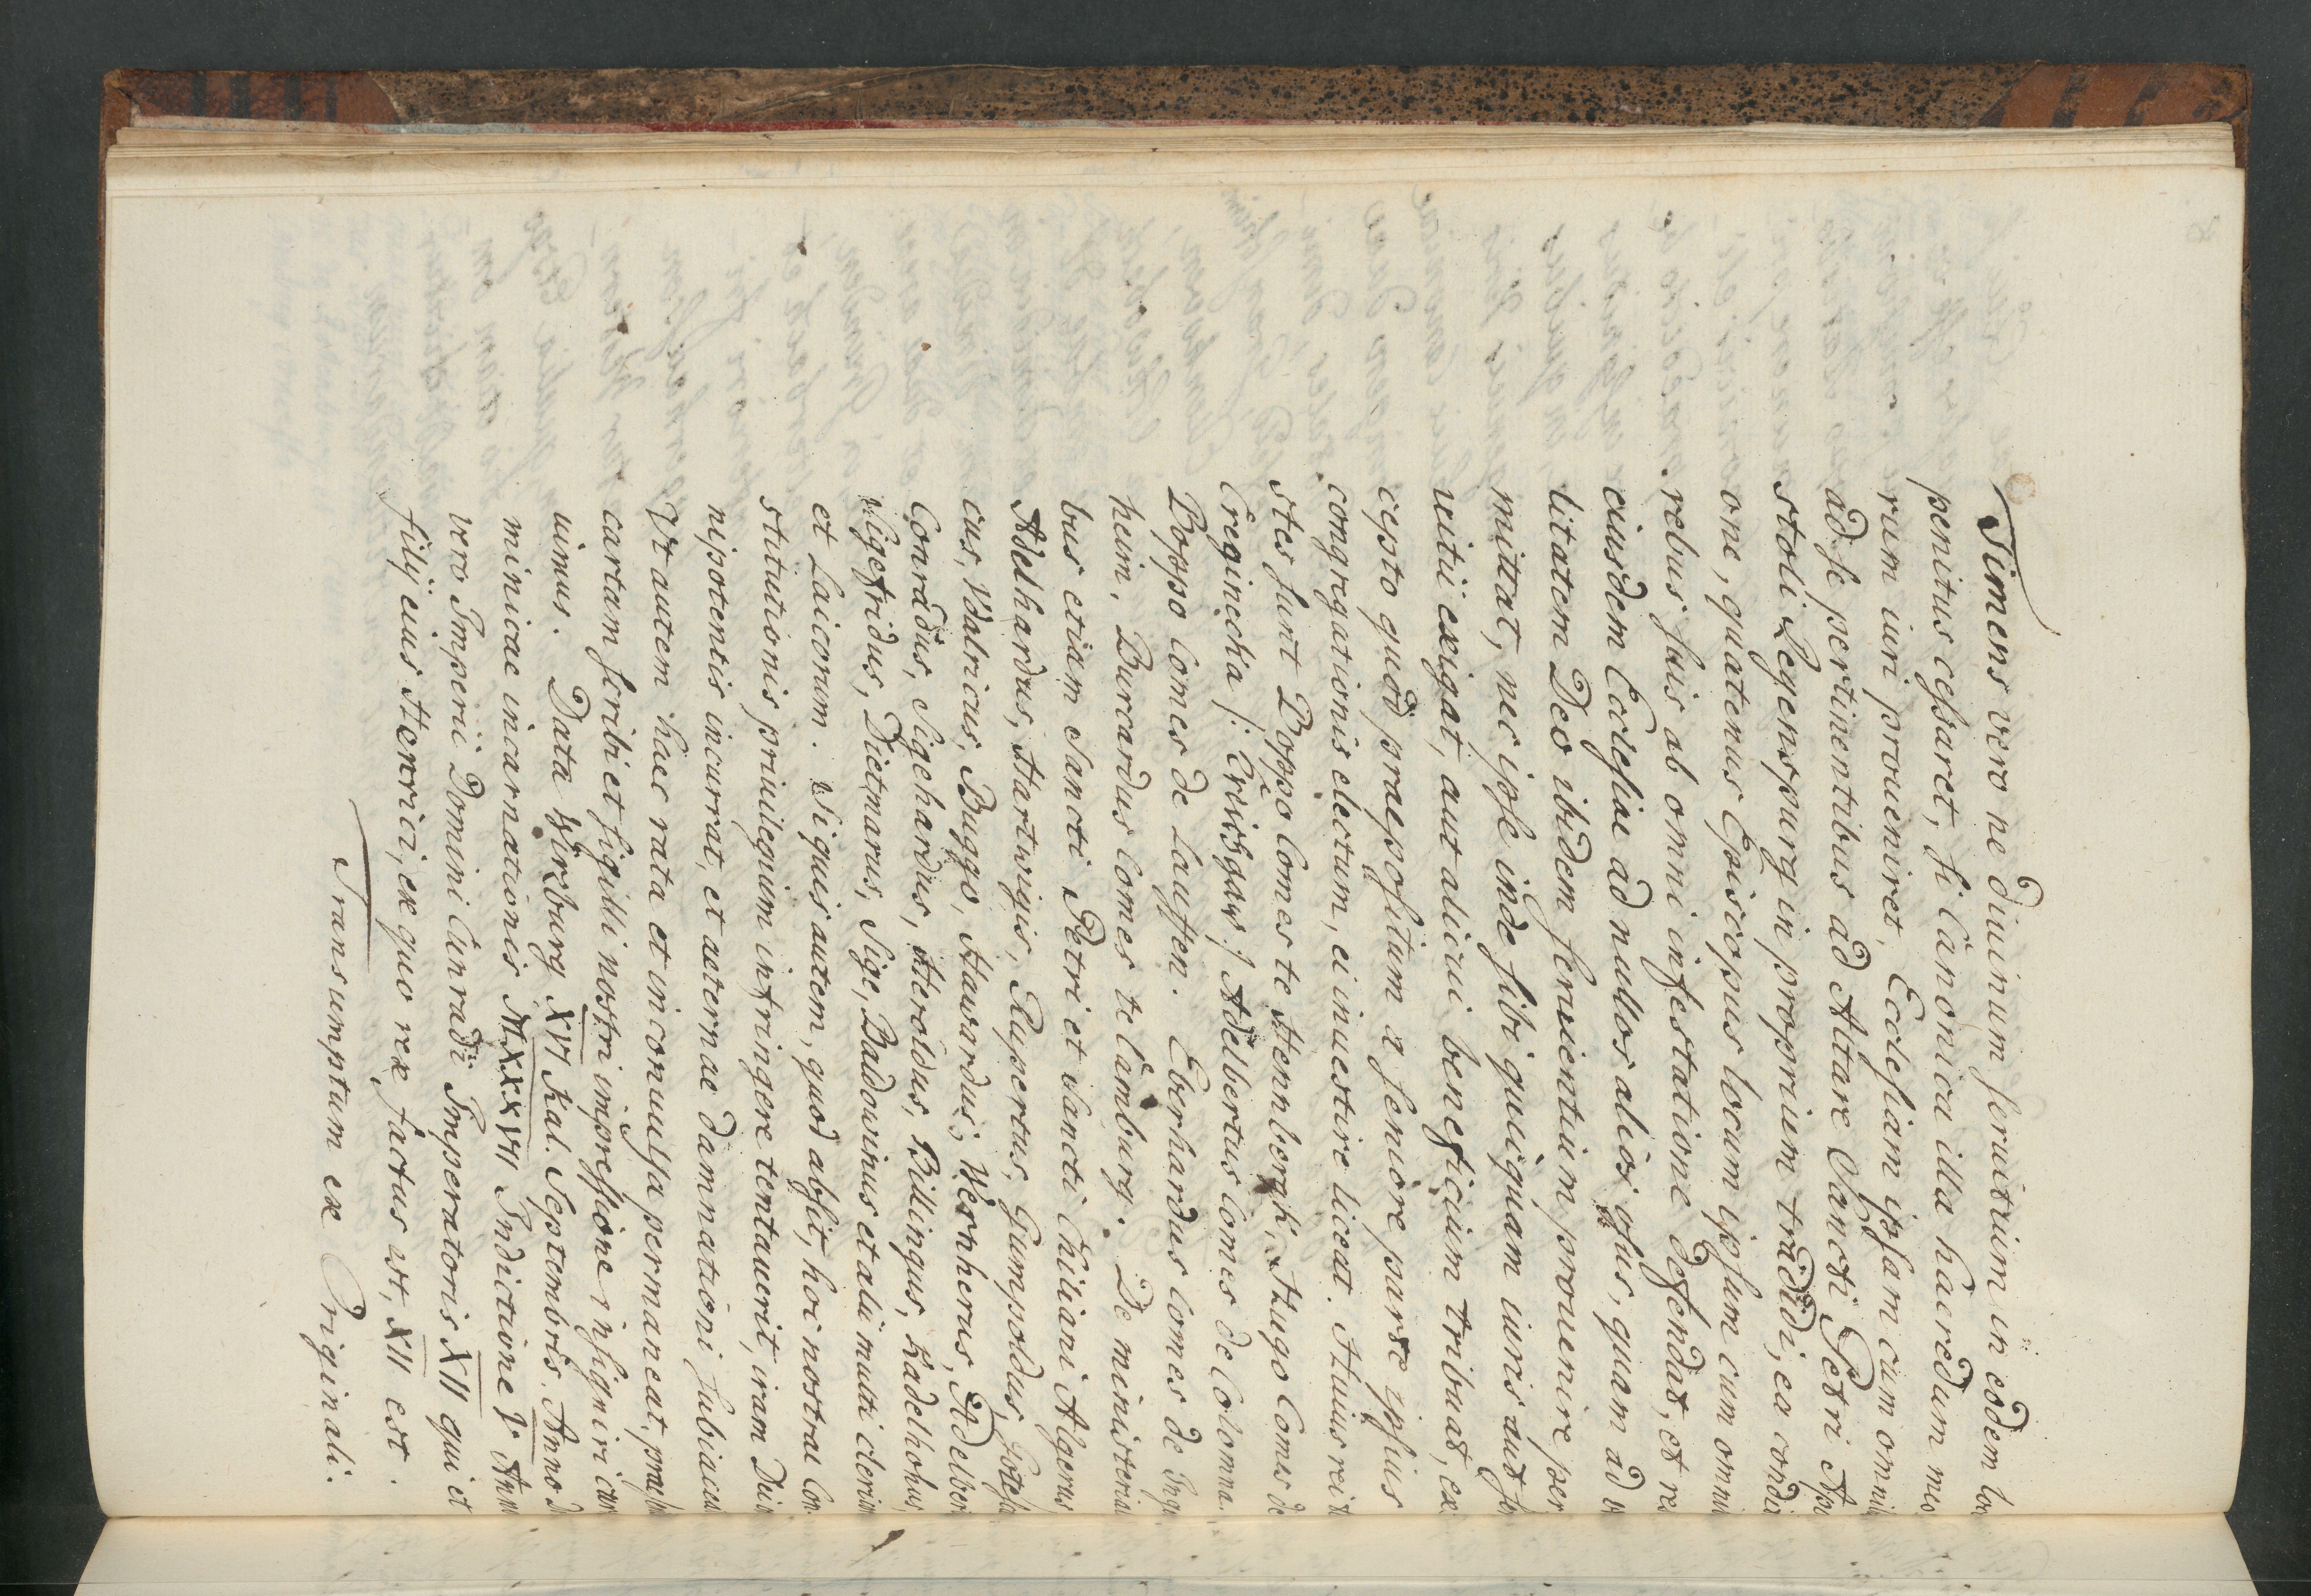 Timens vero ne diuinum seruitium in eodem loco
penitus cessaret, si Canonica illa haeredum meo
rum iuri proueniret, Ecclesiam ipsam cum omnibus
ad se pertinentibus ad Altare Sancti Petri Apo
stoli Regenspurg in proprium tradidi, ea conditi
one, quatenus Episcopus locum ipsum cum omnibus
rebus suis ab omni infestatione defendat, et res
eiusdem Ecclesiae ad nullos alios usus, quam ad
litatem Deo ibidem seruientium prouenire per
mittat, nec ipse inde sibi quicquam iuris aut ser
uitii exigat, aut alicui beneficium tribuat, ex
cepto quod praepositum a seniore parte ipsius
congregationis electum, ei inuestire liceat. Huius rei te
stes sunt Boppo Comes te Hennbergk, Hugo Comes de
Creginecka /: Creichgaw :/ Adelbertus Comes de Colomna.
Boppo Comes de Lauffen. Eberhardus Comes de Ingi
heim, Burcardus Comes te Camburg. De ministeriali
bus etiam Sancti Petri et Sancti Chiliani Algerus
Adelhardus, Hartwigis, Rupertus, Gumpoldus,
cus, Vdalricus, Buggo, Hawardus, Wernherus, Adelberi
Conradus, Sigehardus, Heroldus, Billingus, Kadelhohus
Sigefridus, Dietmarus, Sige, Badouuinus et alii multi clericorum
et Laicorum. Si quis autem, quod absit, hoc nostrae Con
stitutionis priuilegium infringere tentauerit, iram Dei
nipotentis incurrat, et aeternae damnationi subiaceat
Vt autem haec rata et inconuulsa permaneat, prae
cartam scribi et sigilli nostri impressione insigniri cura
uimus. Data Wirzburg XVI Kal. Septembris. Anno do
minicae incarnationis MXXXVII Indictione V Anno
vero Imperii Domini Cunradi Imperatoris XII qui et
filij eius Henrici, ex quo rex factus est, XII est.
Transumptum ex Originali.